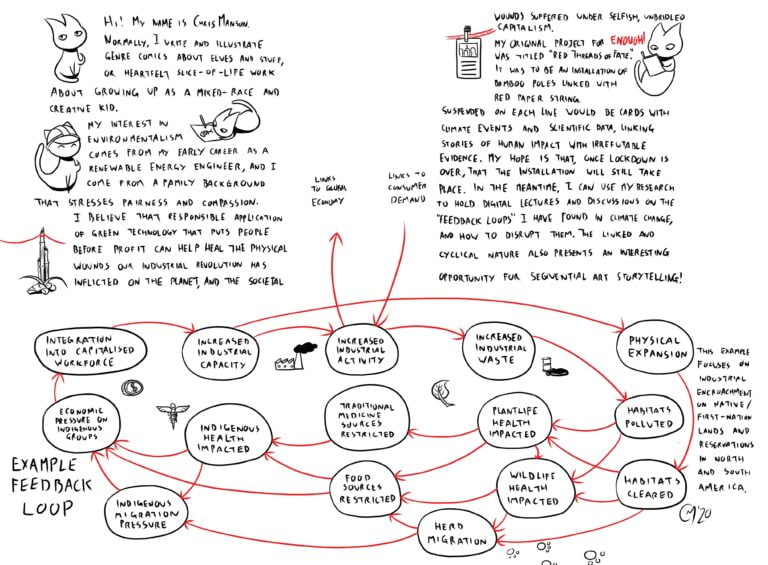 HI! MY NAME IS CHRIS MANSON.
NORMALLY, I WRITE AND ILLUSTRATE
GENRE COMICS ABOUT ELVES AND STUFF,
OR HEARTFELT SLICE-OF-LIFE WORK
ABOUT GROWING UP AS A MIXED-RACE AND
CREATIVE KID.
MY INTEREST IN
ENVIRONMENTALISM
COMES FROM MY EARLY CAREER AS A
RENEWABLE ENERGY ENGINEER, AND I
COME FROM A FAMILY BACKGROUND
THAT STRESSES FAIRNESS AND COMPASSION.
I BELIEVE THAT RESPONSIBLE APPLICATION
OF GREEN TECHNOLOGY THAT PUTS PEOPLE
BEFORE PROFIT CAN HELP HEAL THE PHYSICAL
WOUNDS OUR INDUSTRIAL REVOLUTION HAS
INFLICTED ON THE PLANET, AND THE SOCIETAL
WOUNDS SUFFERED UNDER SELFISH, UNBRIDLED
CAPITALISM.
MY ORIGINAL PROJECT FOR ENOUGH!
WAS TITLED "RED THREADS OF FATE".
IT WAS TO BE AN INSTALLATION OF
BAMBOO POLES LINKED WITH
RED PAPER STRING.
SUSPENDED ON EACH LINE WOULD BE CARDS WITH
CLIMATE EVENTS AND SCIENTIFIC DATA, LINKING
STORIES OF HUMAN IMPACT WITH IRREFUTABLE
EVIDENCE. MY HOPE IS THAT, ONCE LOCKDOWN IS
OVER, THAT THE INSTALLATION WILL STILL TAKE
PLACE. IN THE MEANTIME, I CAN USE MY RESEARCH
TO HOLD DIGITAL LECTURES AND DISCUSSIONS ON THE
"FEEDBACK LOOPS" I HAVE FOUND IN CLIMATE CHANGE,
AND HOW TO DISRUPT THEM. THE LINKED AND
CYCLICAL NATURE ALSO PRESENTS AN INTERESTING
OPPORTUNITY FOR SEQUENTIAL ART STORYTELLING!
LINKS
TO GLOBAL
ECONOMY
LINKS TO
CONSUMER
DEMAND
INTEGRATION
INTO CAPITALISED
WORKFORCE
INCREASED
INDUSTRIAL
CAPACITY
INCREASED
INDUSTRIAL
ACTIVITY
INCREASED
INDUSTRIAL
WASTE
PHYSICAL
EXPANSION
THIS EXAMPLE
FOCUSES ON
INDUSTRIAL
ENCROACHMENT
ON NATIVE/
FIRST-NATION
LANDS AND
RESERVATIONS
IN NORTH
AND SOUTH
AMERICA.
ECONOMIC
PRESSURE ON
INDIGENOUS
GROUPS
INDIGENOUS
HEALTH
IMPACTED
TRADITIONAL
MEDICINE
SOURCES
RESTRICTED
PLANTLIFE
HEALTH
IMPACTED
HABITATS
POLLUTED
EXAMPLE
FEEDBACK
LOOP
INDIGENOUS
MIGRATION
PRESSURE
FOOD
SOURCES
RESTRICTED
WILDLIFE
HEALTH
IMPACTED
HABITATS
CLEARED
HERD
MIGRATION
CM'20